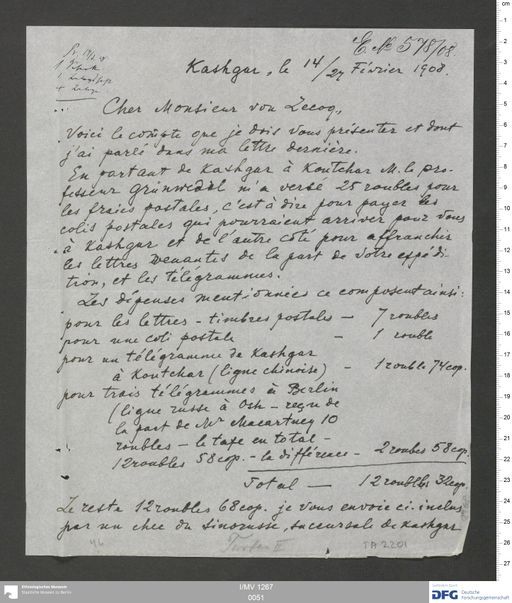 E. No 578/08.
Kashgar, le 14/27 Février 1908.
Cher Monsieur von Lecoq,
Voici le compte que je dois vous présenter et dont
j'ai parlé dans ma lettre dernière.
En partant de Kashgar à Koutchar M. le pro-
fesseur Grünwedel m'a versé 25 roubles pour
les fraies postales, c'est à dire pour payer les
colis postales qui pourraient arriver pour vous
à Kashgar et de l'autre côté pour affranchir
les lettres venantes de la part de votre expédi-
tion, et les télégrammes.
Les dépenses mentionnées ce composent ainsi:
pour les lettres – timbres postales – 7 roubles
pour une coli postale – 1 rouble
pour un télégramme de Kashgar
à Koutchar (ligne chinoise) – 1 rouble 74 cop.
pour trois télégrammes à Berlin
(ligne russe à Osh – reçu de
la part de Mr Macartney 10
roubles – le taxe en total –
12 roubles 58 cop. – la différence – 2 roubles 58 cop.
Total – 12 roubles 32 cop.
Le resta 12 roubles 68 cop. je vous envoie ci-inclus
par un chec du Sinorusse, succursale de Kashgar
46
Turfan II
TA 2201
Ethnologisches Museum
Staatliche Museen zu Berlin
I/MV 1267
0051
DFG Deutsche
Forschungsgemeinschaft
cm
1
2
3
4
5
6
7
8
9
10
11
12
13
14
15
16
17
18
19
20
21
22
23
24
25
26
27